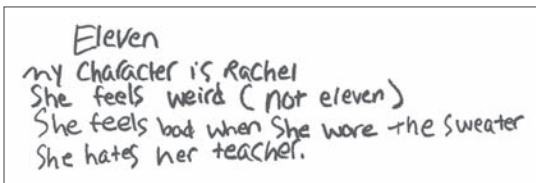 Eleven
my Character is Rachel
She feels weird (not eleven)
She feels bad when She wore the sweater
She hates her teacher.